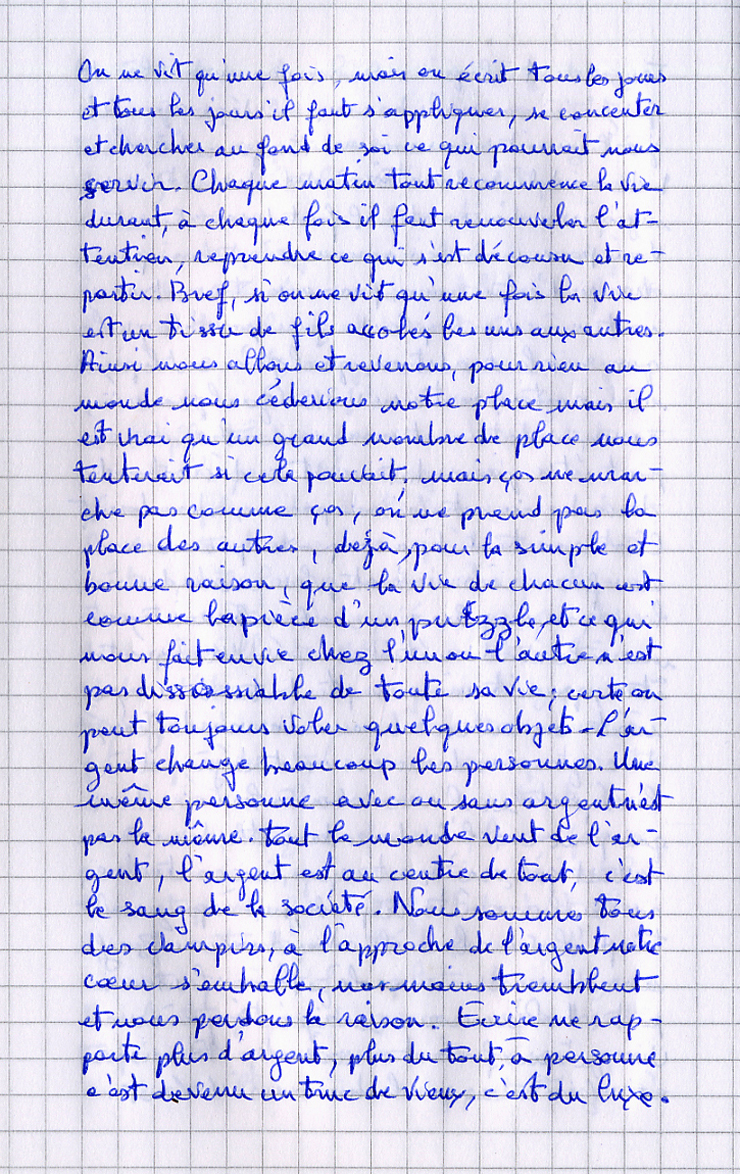 On ne vit qu'une fois, mais on écrit tous les jours
et tous les jours il faut s'appliquer, se concenter
et chercher au fond de soi ce qui pourrait nous
servir. Chaque matin tout recommence la vie
durant, à chaque fois il faut renouveler l'at-
tention, reprendre ce qui s'est décousu et re-
partir. Bref, si on ne vit qu'une fois la vie
est un tissu de fils accolés les uns aux autres.
Ainsi nous allons et revenons, pour rien au
monde nous céderions notre place mais il
est vrai qu'un grand nombre de place nous
tenterait si cela pouvait. mais ças ne mar-
che pas comme ças, on ne prend pas la
place des autres, dejà, pour la simple et
bonne raison, que la vie de chacun est
comme la pièce d'un putzzle, et ce qui
nous fait envie chez l'un ou l'autre n'est
pas dissossiable de toute sa vie; certe on
peut toujours voler quelques objets - L'ar-
gent change beaucoup les personnes. Une
même personne avec ou sans argent n'est
pas la même. tout le monde veut de l'ar-
gent, l'argent est au centre de tout, c'est
le sang de la société. Nous sommes tous
des vampirs, à l'approche de l'argent notre
cœur s'emballe, nos mains tremblent
et nous perdons la raison. Ecrire ne rap-
porte plus d'argent, plus du tout, à personne
c'est devenu un truc de vieux, c'est du luxe.